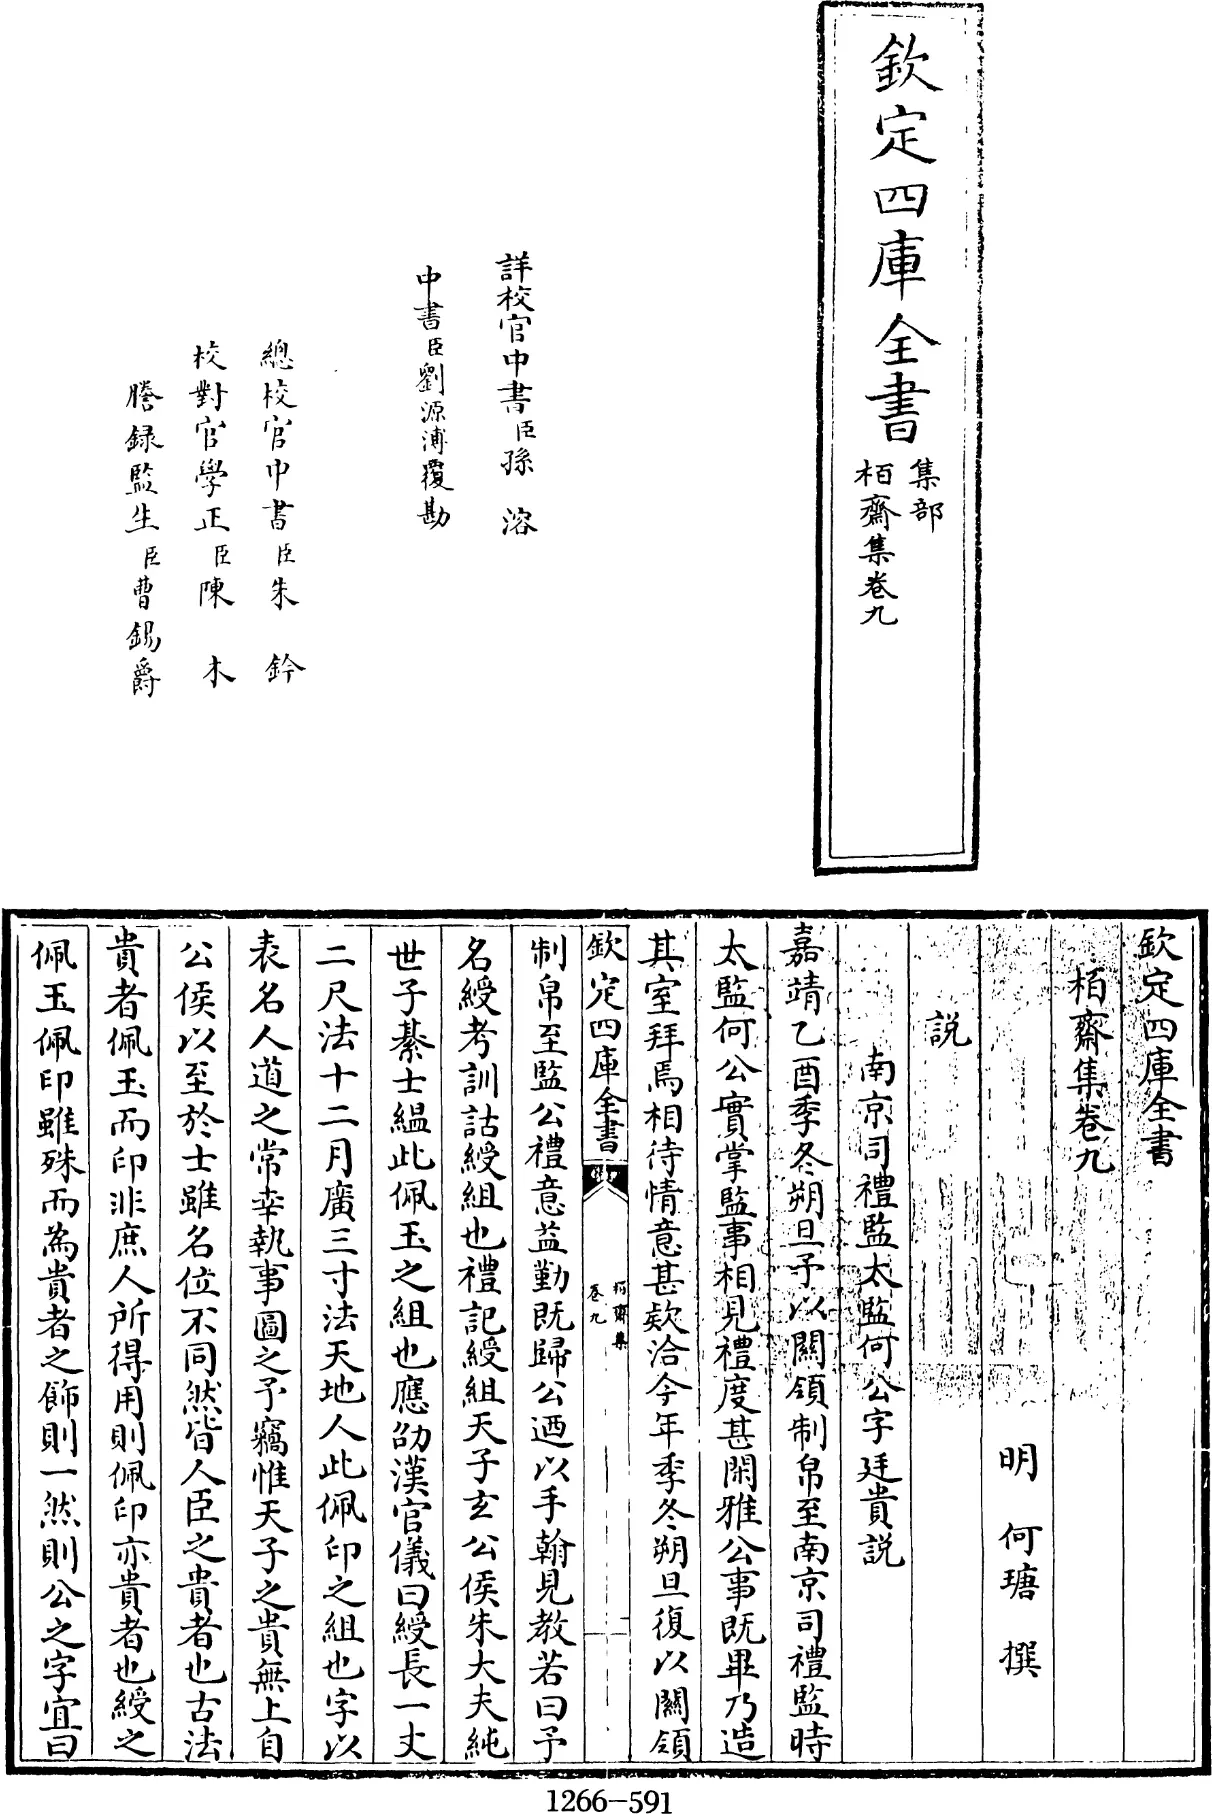 欽定四庫全書
集部
栢齋集卷九
詳校官中書臣孫溶
中書臣劉源溥覆勘
總校官中書臣朱鈐
校對官學正臣陳木
謄録監生臣曹錫爵
欽定四庫全書
栢齋集卷九
明何瑭撰
説
南京司禮監太監何公字廷貴説
嘉靖乙酉季冬朔旦予以關領制帛至南京司禮監時
太監何公實掌監事相見禮度甚閑雅公事既畢乃造
其室拜焉相待情意甚欵洽今年季冬朔旦復以關領
欽定四庫全書
栢齋集
卷九
一
制帛至監公禮意益勤既歸公廼以手翰見教若曰予
名綬考訓詁綬組也禮記綬組天子玄公侯朱大夫純
世子綦士緼此佩玉之組也應劭漢官儀曰綬長一丈
二尺法十二月廣三寸法天地人此佩印之組也字以
表名人道之常幸執事圖之予竊惟天子之貴無上自
公侯以至於士雖名位不同然皆人臣之貴者也古法
貴者佩玉而印非庶人所得用則佩印亦貴者也綬之
佩玉佩印雖殊而為貴者之飾則一然則公之字宜曰
1266-591